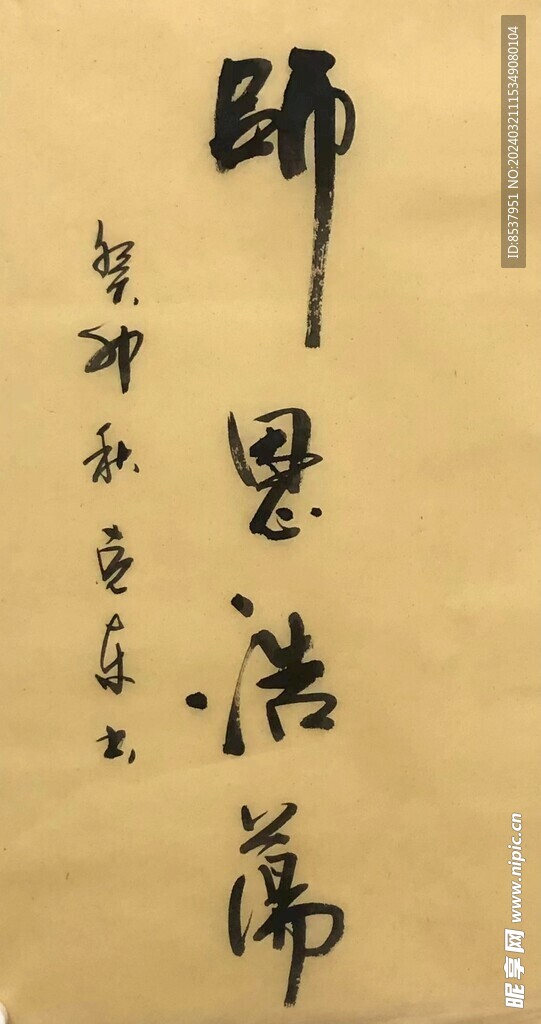 師恩浩蕩
癸卯秋克東书
ID:8537951 NO:20240321115349080104
昵享网 www.nipic.cn